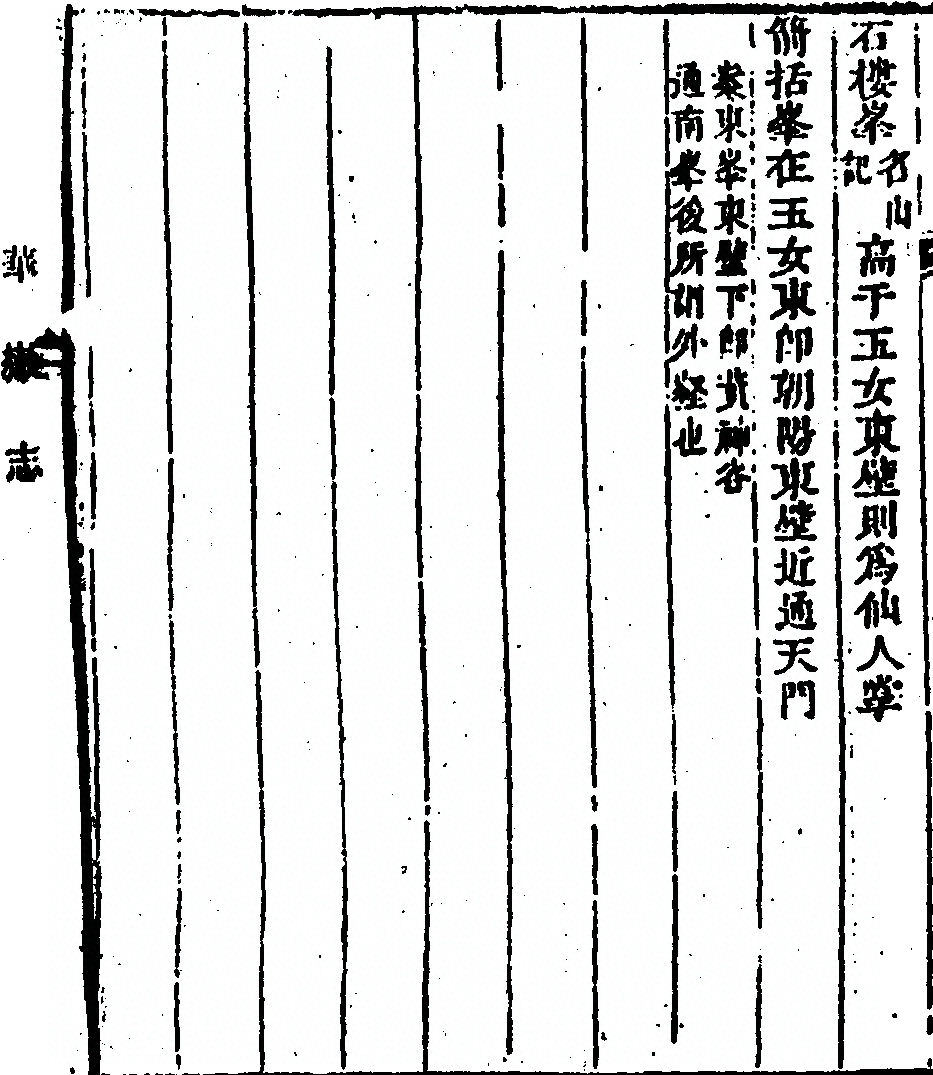 石樓峯名山記高于玉女東壁則為仙人掌
峯在玉女東即朝陽東壁近通天門
案東峯東壁下即黃神谷
通南峯後所謂外經也
華嶽志